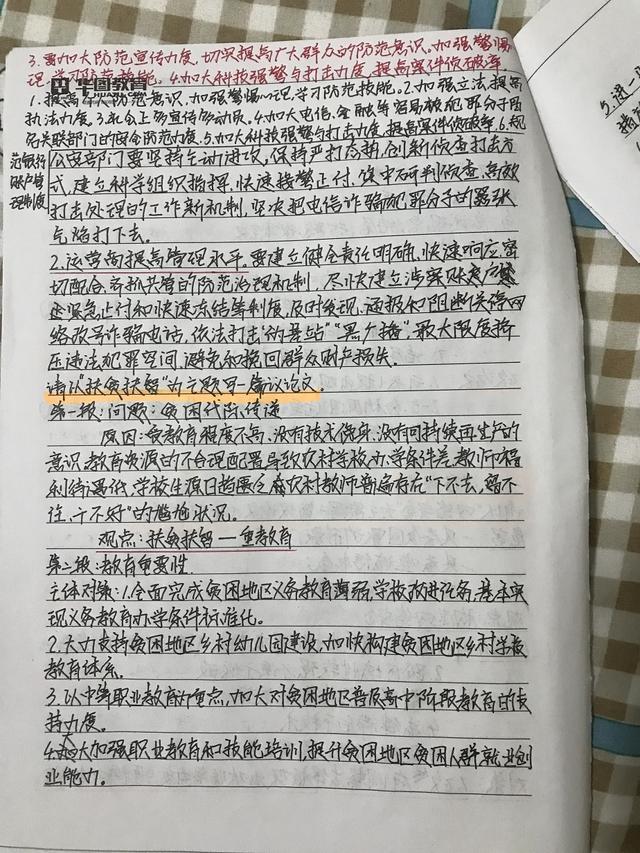 3.要加大防范宣传力度,切实提高广大群众的防范意识。加强警惕
理,学习防范技能。4.加大科技强警与打击力度,提高案件侦破率
华图教育
HUATU.COM
1.提高 防范意识,加强警惕心理,学习防范技能。2.加强立法,提高
执法力度。3.社会上多宣传多动员。4.加大电信、金融等容易被犯罪分子
关联部门的安全防范力度。5.加大科技强警与打击力度,提高案件侦破率。6.规
范银行
账户管
理制度
公安部门要坚持主动进攻,保持严打态势,创新侦查打击方
式,建立科学组织指挥、快速接警止付、集中研判侦查、高效
打击处理的工作新机制,坚决把电信诈骗犯罪分子的嚣张
气焰打下去。
2.运营商提高管理水平。要建立健全责任明确、快速响应、密
切配合、齐抓共管的防范治理机制,尽快建立涉案账户
紧急止付和快速冻结等制度,及时发现、通报和阻断关停网
络改号诈骗电话,依法打击“伪基站”“黑广播”,最大限度挤
压违法犯罪空间,避免和挽回群众财产损失。
请以“扶贫扶智”为主题写一篇议论文。
第一段:问题:贫困代际传递
原因:受教育程度不高、没有技术傍身、没有可持续再生产的
意识、教育资源的不合理配置导致农村学校办学条件差、教师福
利待遇低,学校生源日趋匮乏,农村教师普遍存在“下不去、留不
住、干不好”的尴尬状况。
观点:扶贫扶智—重教育
第二段:教育重要性
主体对策:1.全面完成贫困地区义务教育薄弱学校改进任务,基本实
现义务教育办学条件标准化。
2.大力支持贫困地区乡村幼儿园建设,加快构建贫困地区乡村学前
教育体系。
3.以中等职业教育为重点,加大对贫困地区普及高中阶段教育的支
持力度。
4.大加强职业教育和技能培训,提升贫困地区贫困人群就业创
业能力。